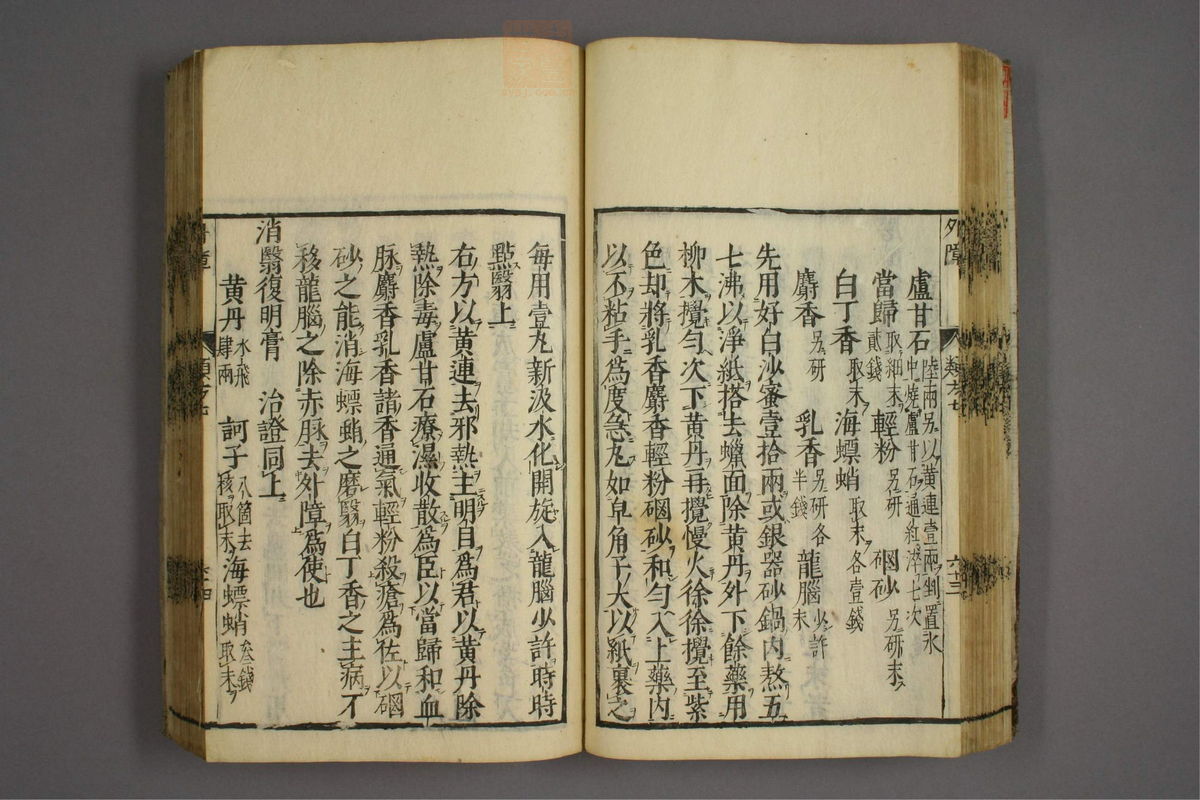 外障
盧甘石 陸兩另以黃連壹兩剉置水中燒盧甘石通紅淬七次
當歸 取細末貳錢 輕粉 另研 硇砂 另研末
白丁香 取末 海螵蛸 取末各壹錢
麝香 另研 乳香 另研各半錢 龍腦 少許末
先用好白沙蜜壹拾兩或銀器砂鍋內熬五
七沸以淨紙搭去蠟面除黃丹外下餘藥用
柳木攪勻次下黃丹再攪慢火徐徐攪至紫
色却將乳香麝香輕粉硇砂和勻入上藥內
以不粘手為度急丸如皁角子大以紙裹之
每用壹丸新汲水化開旋入龍腦少許時時
點翳上
右方以黃連去邪熱主明目為君以黃丹除
熱除毒盧甘石療濕收散為臣以當歸和血
脉麝香乳香諸香通氣輕粉殺瘡為佐以硇
砂之能消海螵蛸之磨翳白丁香之主病不
移龍腦之除赤脉去外障為使也
消翳復明膏 治證同上
黃丹 水飛肆兩 訶子 八箇去核取末 海螵蛸 叁錢取末